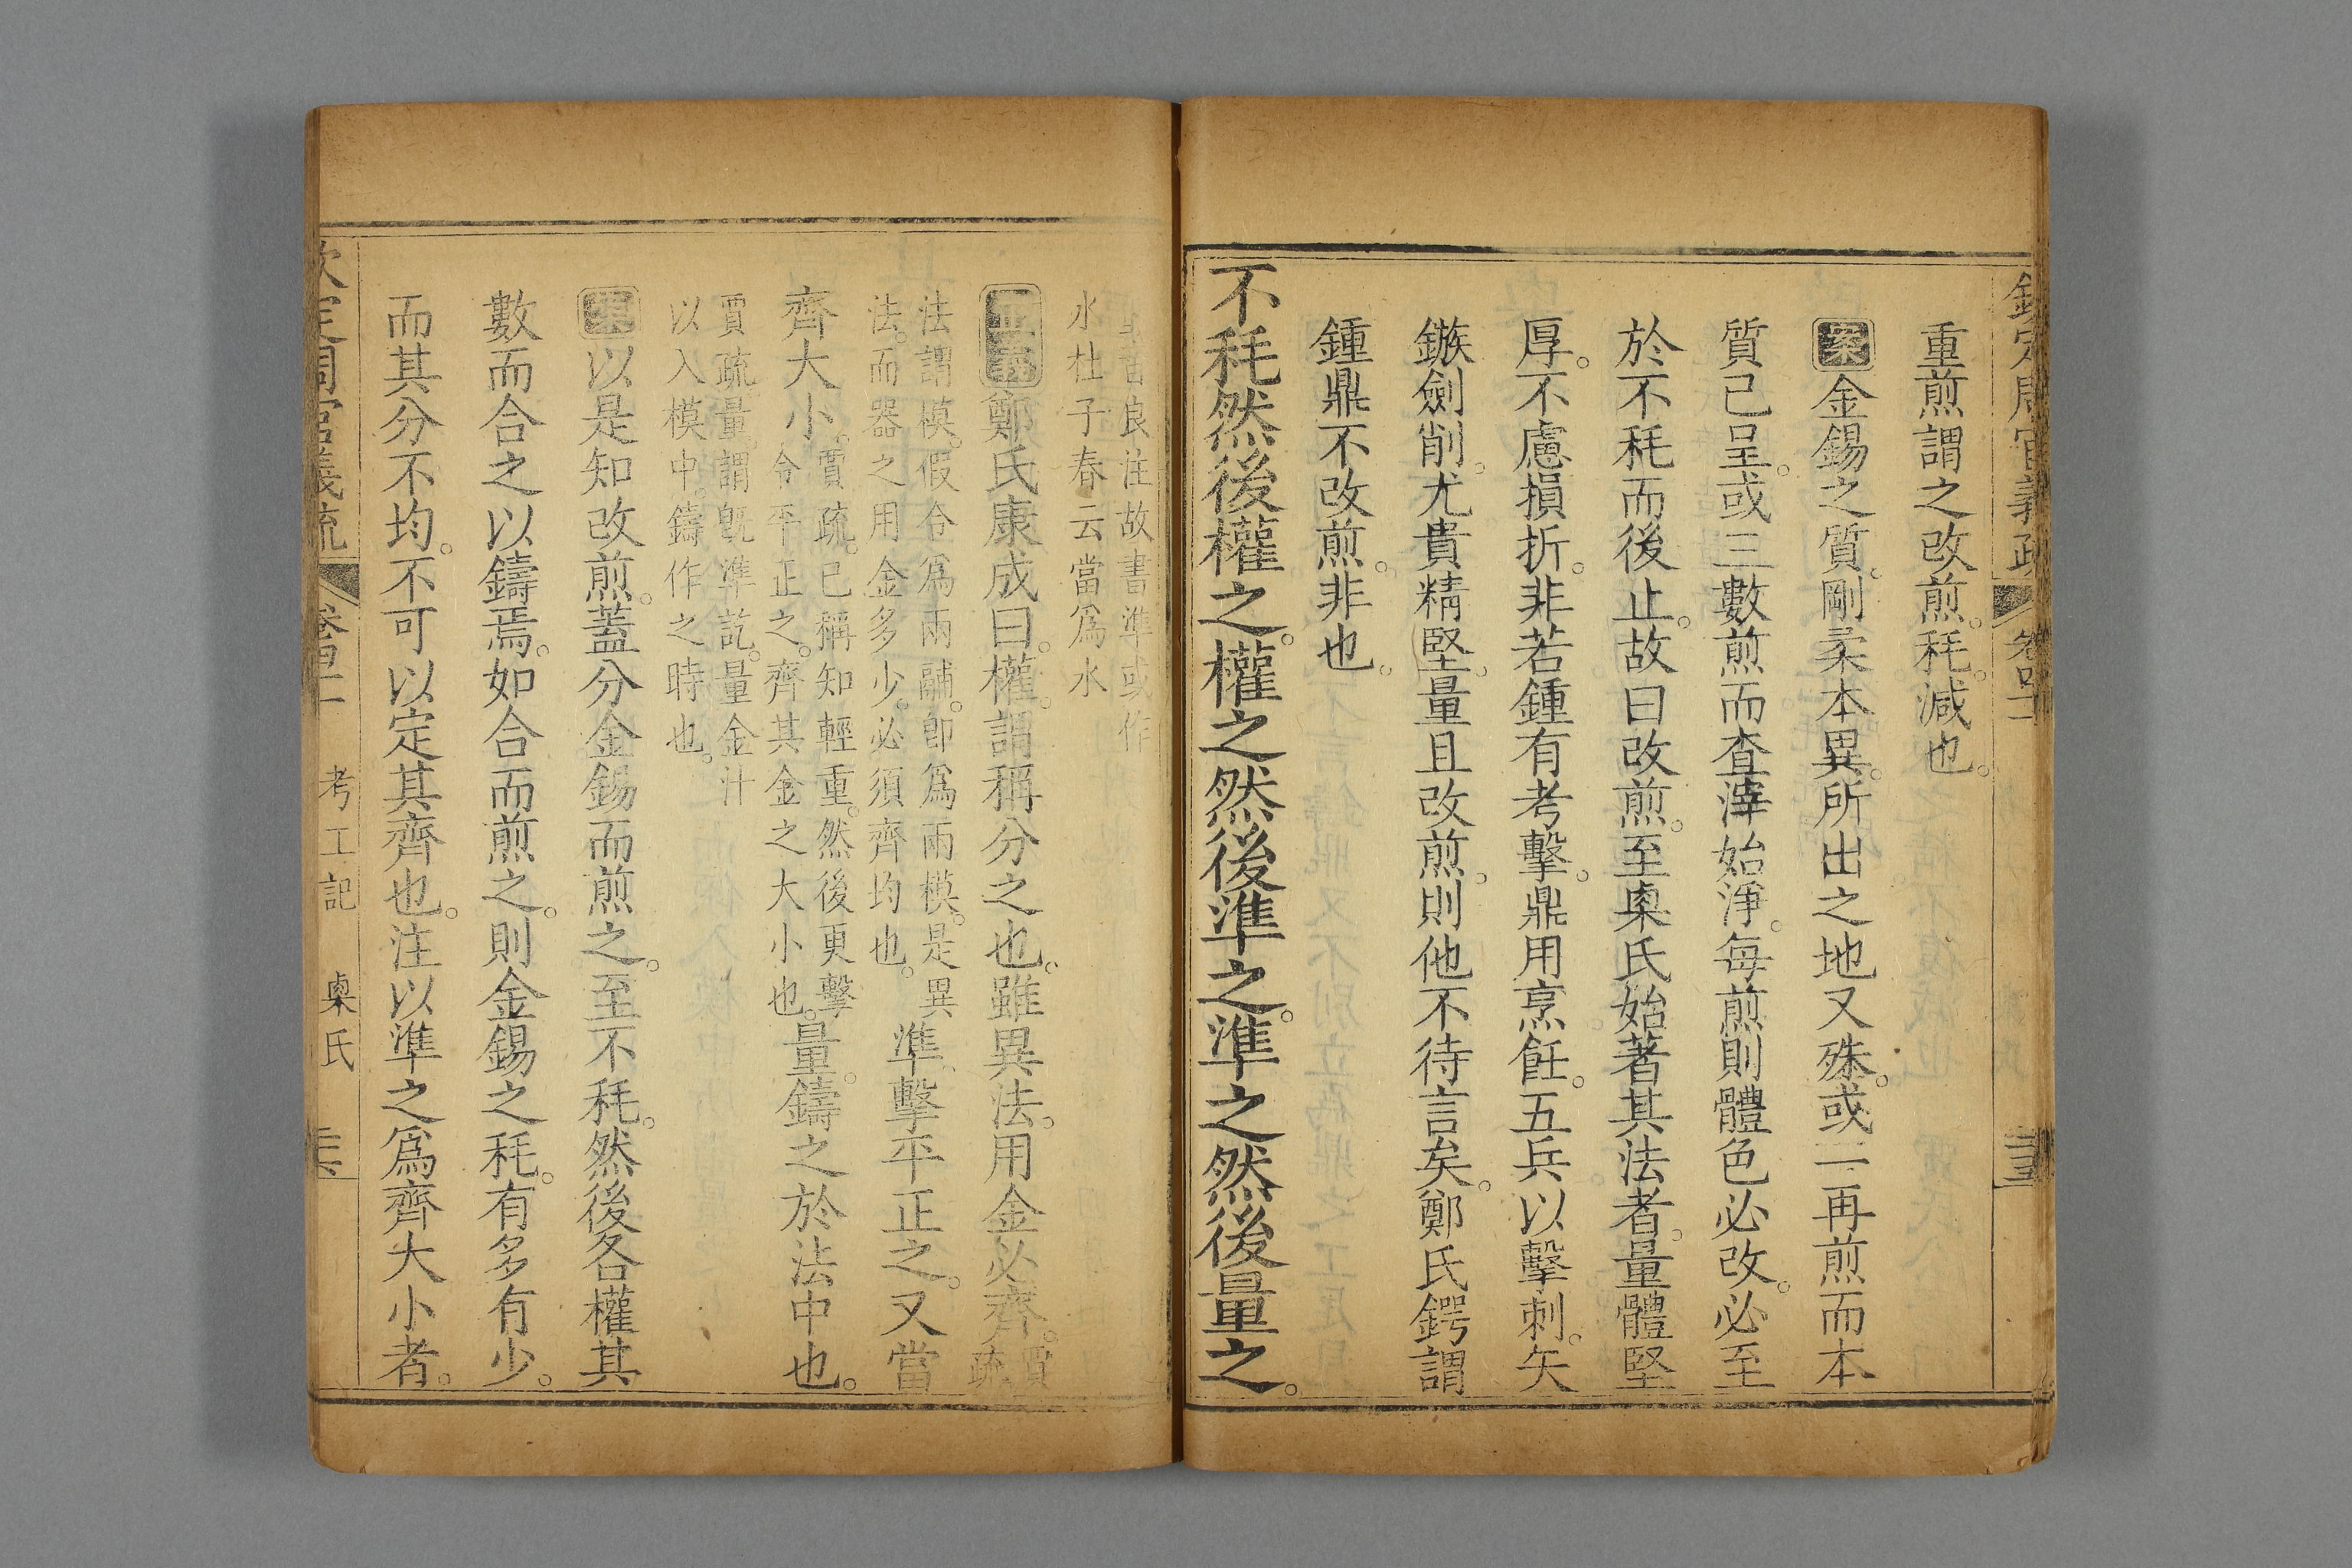 欽定周官義疏 卷四十二
重煎謂之改煎。秏。減也。
案金錫之質。剛柔本異。所出之地又殊。或一二再煎而本
質已呈。或三數煎而查滓始淨。每煎則體色必改。必至
於不秏而後止。故曰改煎。至㮚氏始著其法者。量體堅
厚。不慮損折。非若鍾有考擊。鼎用烹飪。五兵以擊刺。矢
鏃劍削。尤貴精堅。量且改煎。則他不待言矣。鄭氏鍔謂
鍾鼎不改煎。非也。
不秏然後權之。權之然後準之。準之然後量之。
良注故書準或作
水杜子春云當爲水
正義鄭氏康成曰。權。謂稱分之也。雖異法。用金必齊。賈疏
法謂模。假令爲兩鬴。卽爲兩模。是異
法。而器之用金多少。必須齊均也。準擊平正之。又當
齊大小。賈疏。已稱知輕重。然後更擊
令平正之。齊其金之大小也。量鑄之於法中也。
賈疏。量。謂旣準訖。量金汁
以入模中。鑄作之時也。
案以是知改煎。蓋分金錫而煎之。至不秏。然後各權其
數而合之以鑄焉。如合而煎之。則金錫之秏。有多有少。
而其分不均。不可以定其齊也。注以準之爲齊大小者。
欽定周官義疏 卷四十二 考工記 㮚氏